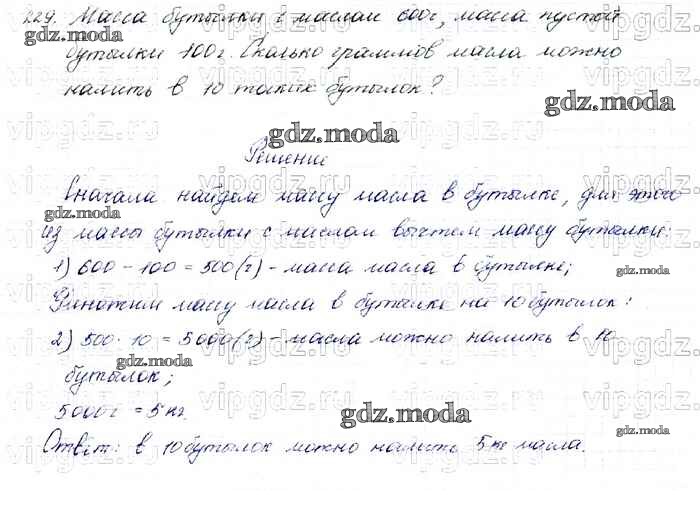 229. Масса бутылки с маслом 600г, масса пустой
gdz.moda
бутылки 100г. Сколько граммов масла можно
налить в 10 таких бутылок?
gdz.moda
vipgdz.ru
gdz.moda
Решение
Сначала найдем массу масла в бутылке, для этого
gdz.moda
из массы бутылки с маслом вычтем массу бутылки:
1) 600 - 100 = 500(г) - масса масла в бутылке;
gdz.moda
Умножим массу масла в бутылке на 10 бутылок:
2) 500 · 10 = 5000(г) - масла можно налить в 10
gdz.moda
gdz.moda
бутылок;
5000г = 5кг.
gdz.moda
gdz.moda
Ответ: в 10 бутылок можно налить 5кг масла.